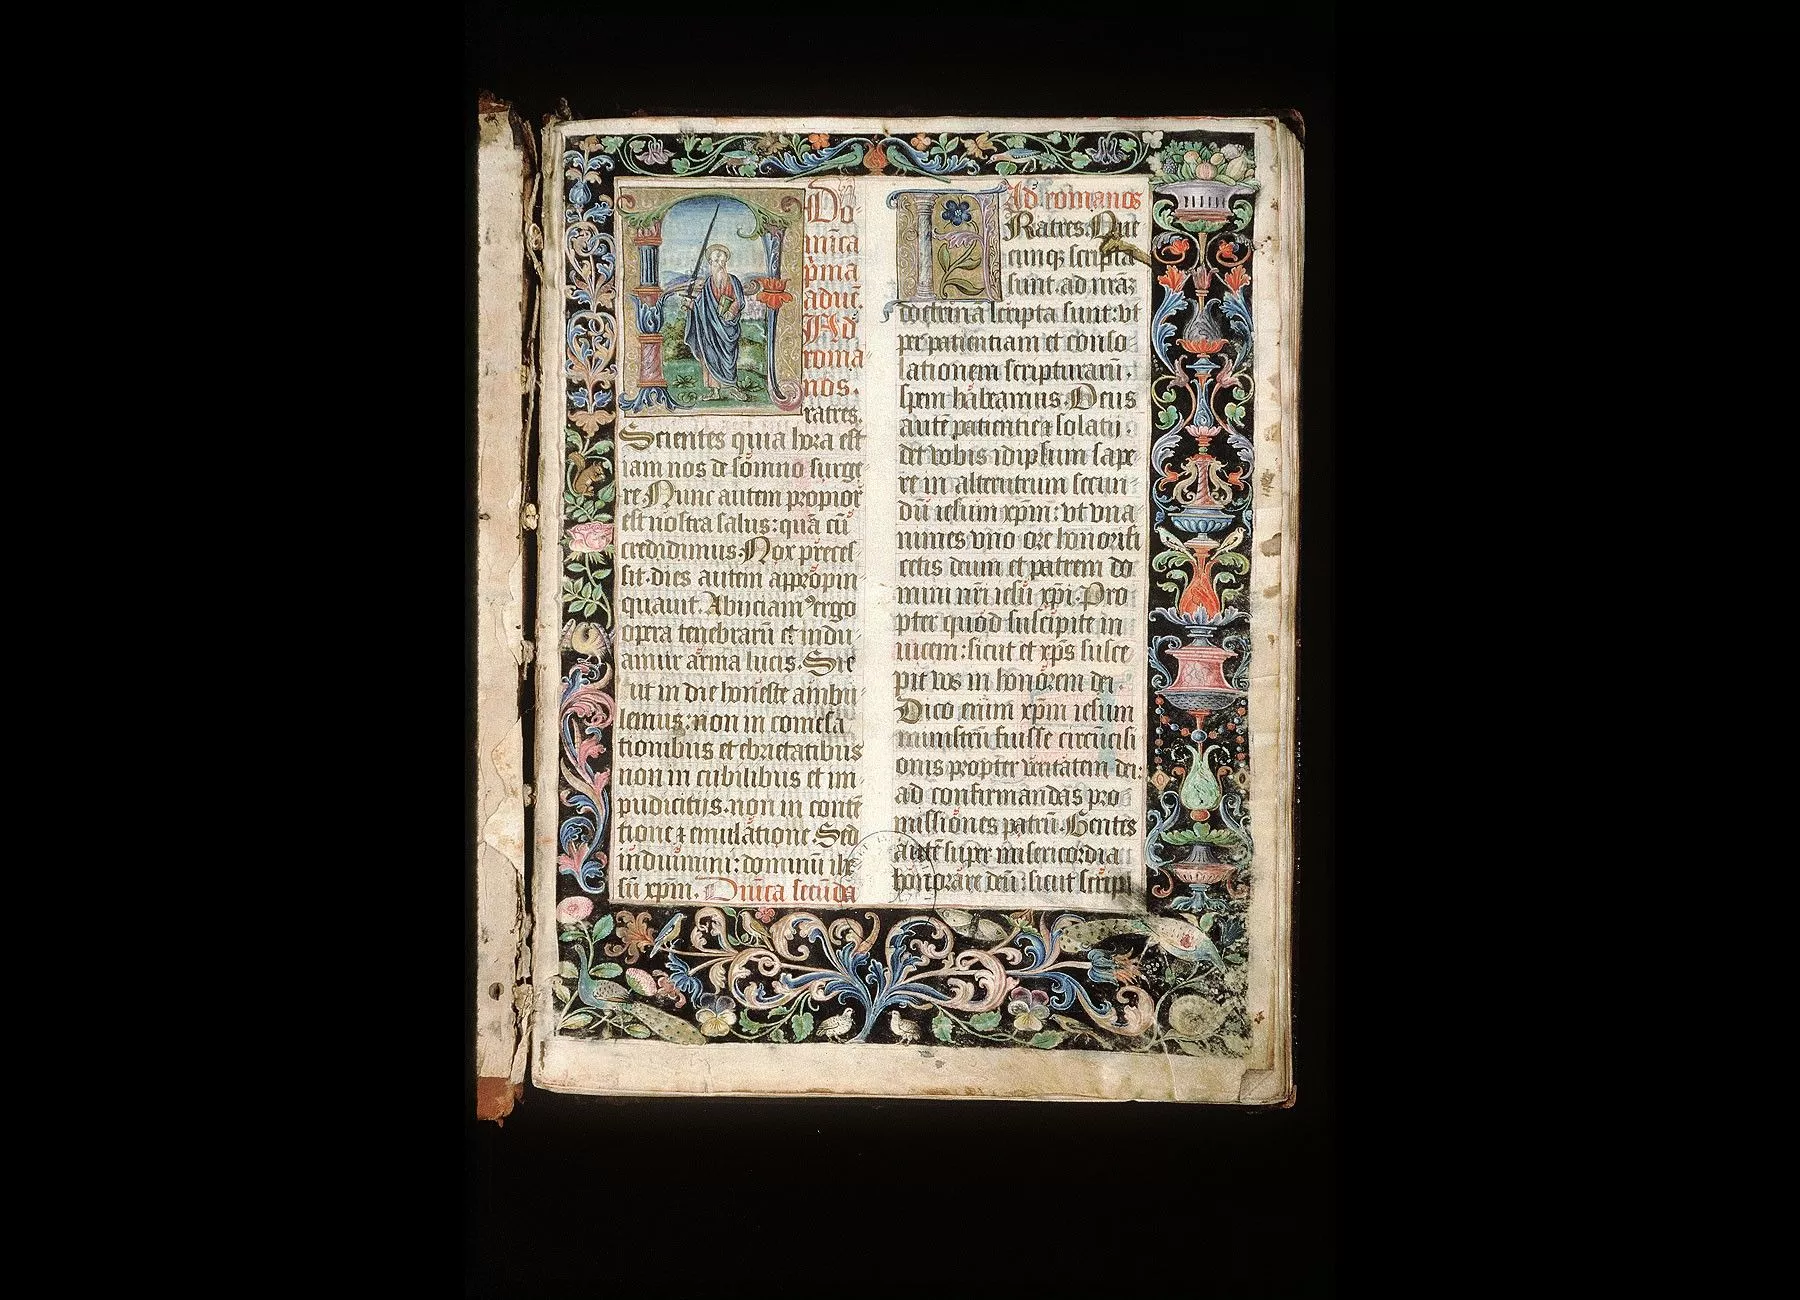 Do-
mīca
p̄ma
aduēt.
Ad
roma-
nos.
ratres.
Scientes quia hora est
iam nos de somno surge-
re. Nunc autem propior
est nostra salus: quā cū
credidimus. Nox preces-
sit. dies autem appropin-
quauit. Abijciamꝰ ergo
opera tenebrarū et indu-
amur arma lucis. Sic
ut in die honeste ambu-
lemus: non in comesa
tionibus et ebrietatibus
non in cubilibus et im-
pudicitijs. non in contē
tione ⁊ emulatione. Sed
induimini: dominū ihe
sū xp̄m. Dn̄ica secūda
Ad romanos
Ratres. Que
cunqꝫ scripta
sunt: ad nr̄aꝫ
doctrina scripta sunt: vt
per patientiam et conso-
lationem scripturarū.
spem habeamus. Deus
autē patientie ⁊ solatij.
det vobis idipsum sape-
re in alterutrum secun-
dū iesum xp̄m: vt vna
nimes vno ore honorifi
cetis deum et patrem do
mini nr̄i iesu xp̄i. Pro
pter quod suscipite in
uicem: sicut et xp̄s susce
pit vos in honorem dei.
Dico enim xp̄m iesum
ministrū fuisse circūcisi
onis propter veritatem dei:
ad confirmandas pro
missiones patrū. Gentes
autē super misericordia
honorare deū: sicut script